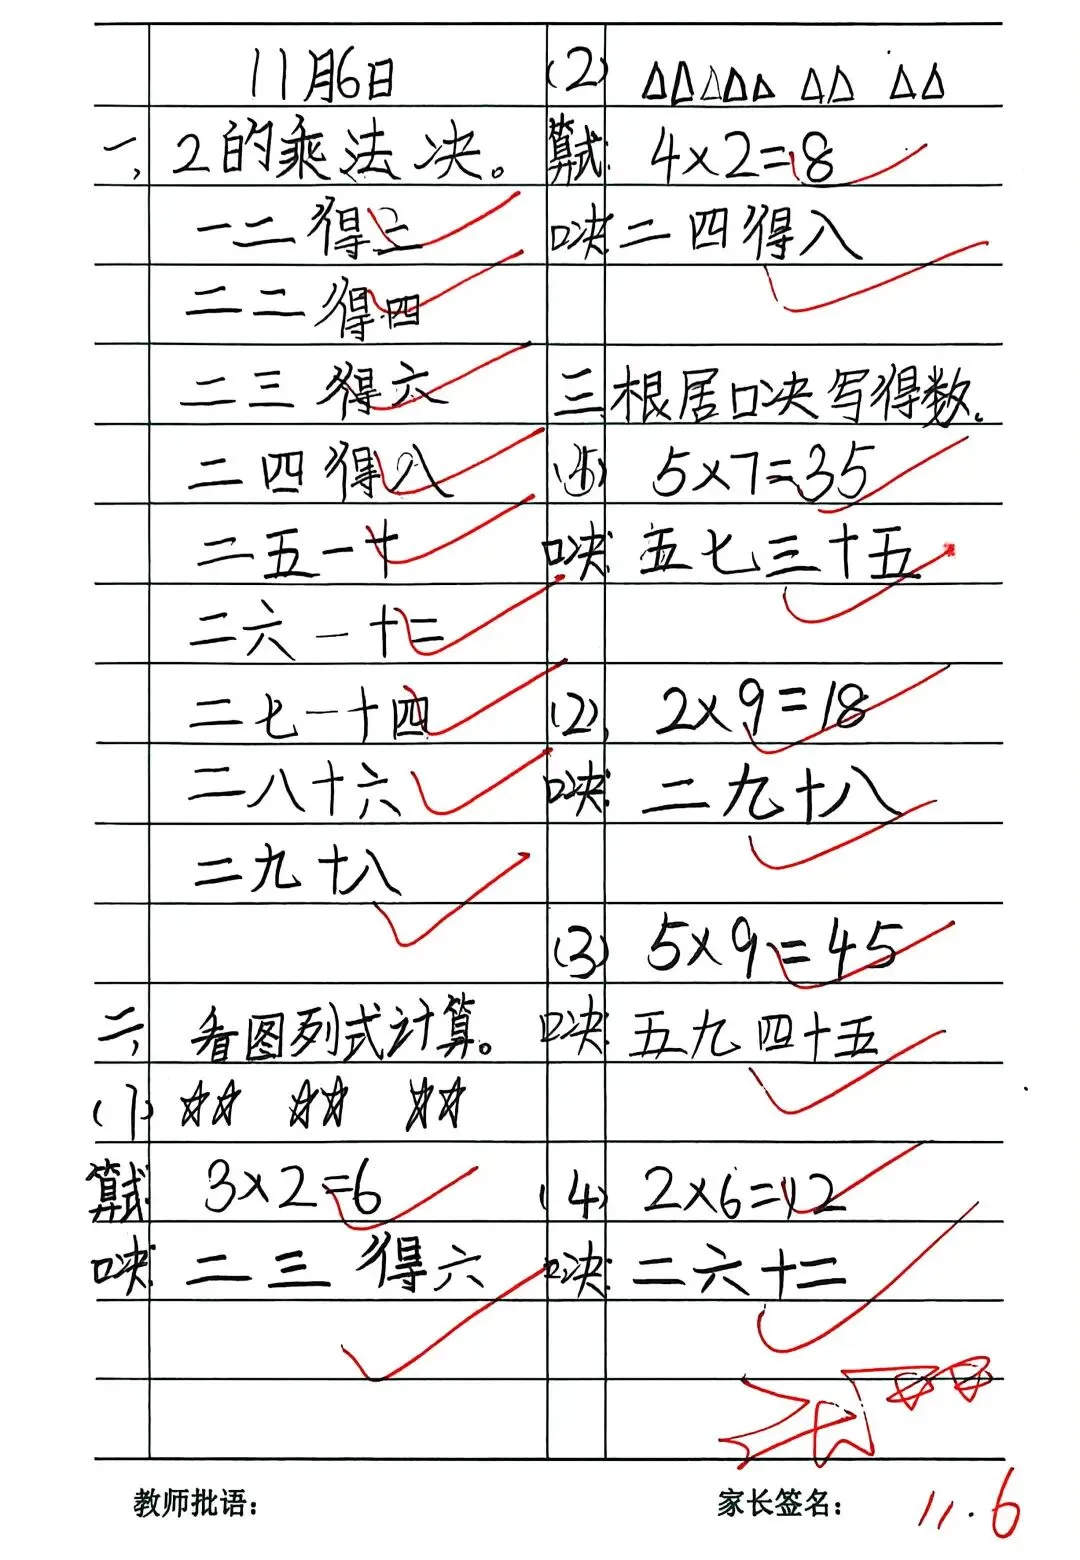 11月6日
一、2的乘法决。
一二得二
二二得四
二三得六
二四得八
二五一十
二六一十二
二七一十四
二八十六
二九十八
二、看图列式计算。
(1)
算式: 3×2=6
口决: 二三得六
(2)
算式: 4×2=8
口决: 二四得八
三根居口决写得数.
(1) 5×7=35
口决: 五七三十五
(2), 2×9=18
口决: 二九十八
(3) 5×9=45
口决: 五九四十五
(4) 2×6=12
口决: 二六十二
教师批语:
家长签名: 11.6